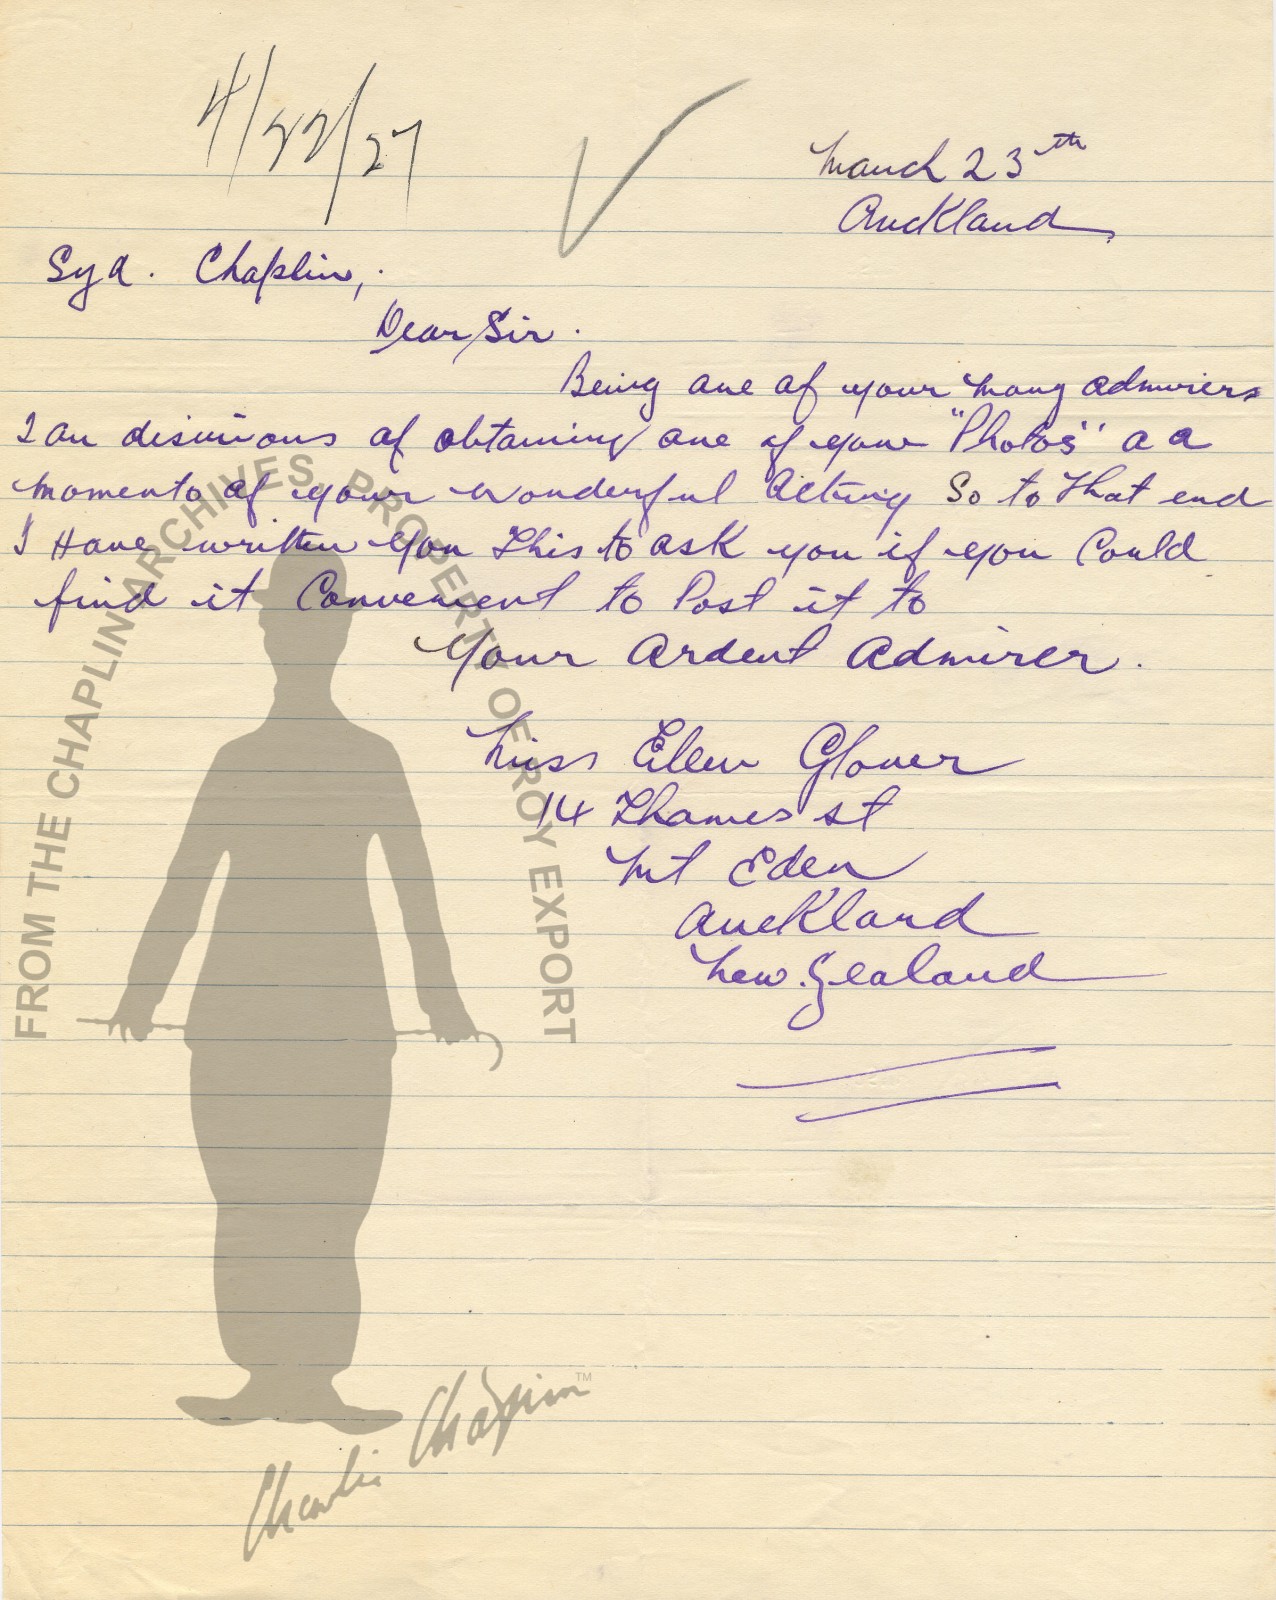 4/22/27
March 23th
Auckland
Syd. Chaplin,
Dear Sir.
Being one of your many admirers
I am disirious of obtaining one of your "Photos" a a
momento of your wonderful Acting So to that end
I Have written you this to ask you if you Could
find it Convenient to Post it to
Your Ardent Admirer.
Miss Ellen Glover
14 Thames st
Mt Eden
Auckland
New. Zealand
FROM THE CHAPLIN ARCHIVES, PROPERTY OF ROY EXPORT
Charlie Chaplin™